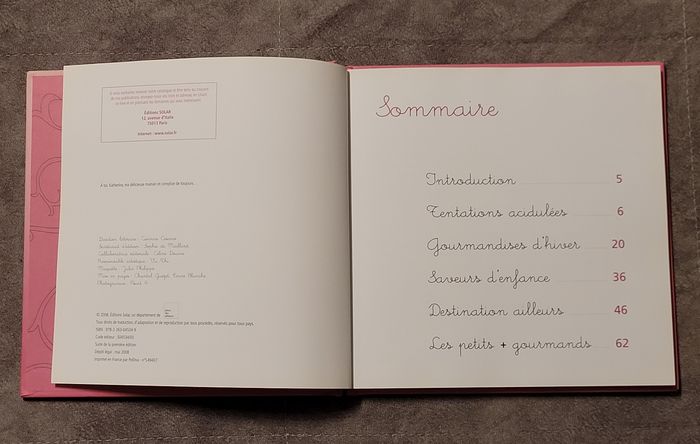 Si vous souhaitez recevoir notre catalogue et être tenu au courant
de nos publications, envoyez-nous vos nom et adresse, en citant
ce livre et en précisant les domaines qui vous intéressent.
Éditions SOLAR
12, avenue d'Italie
75013 Paris
Internet : www.solar.fr
À toi, Katherine, ma délicieuse maman et complice de toujours...
Direction littéraire : Corinne
Secrétariat d'édition : Sophie de
Collaboration éditoriale :
Responsable artistique : Vu Thi
Maquette : Julie Philippe
Mise en pages : Chantal Guézet, Pierre Blanche
Photogravure : Point 4
© 2008, Éditions Solar, un département de
Tous droits de traduction, d'adaptation et de reproduction par tous procédés, réservés pour tous pays.
ISBN : 978-2-263-04524-9
Code éditeur :
Suite de la première édition
Dépôt légal : mai 2008
Imprimé en France par Pollina - n°
Sommaire
Introduction 5
Tentations acidulées 6
Gourmandises d'hiver 20
Saveurs d'enfance 36
Destination ailleurs 46
Les petits + gourmands 62